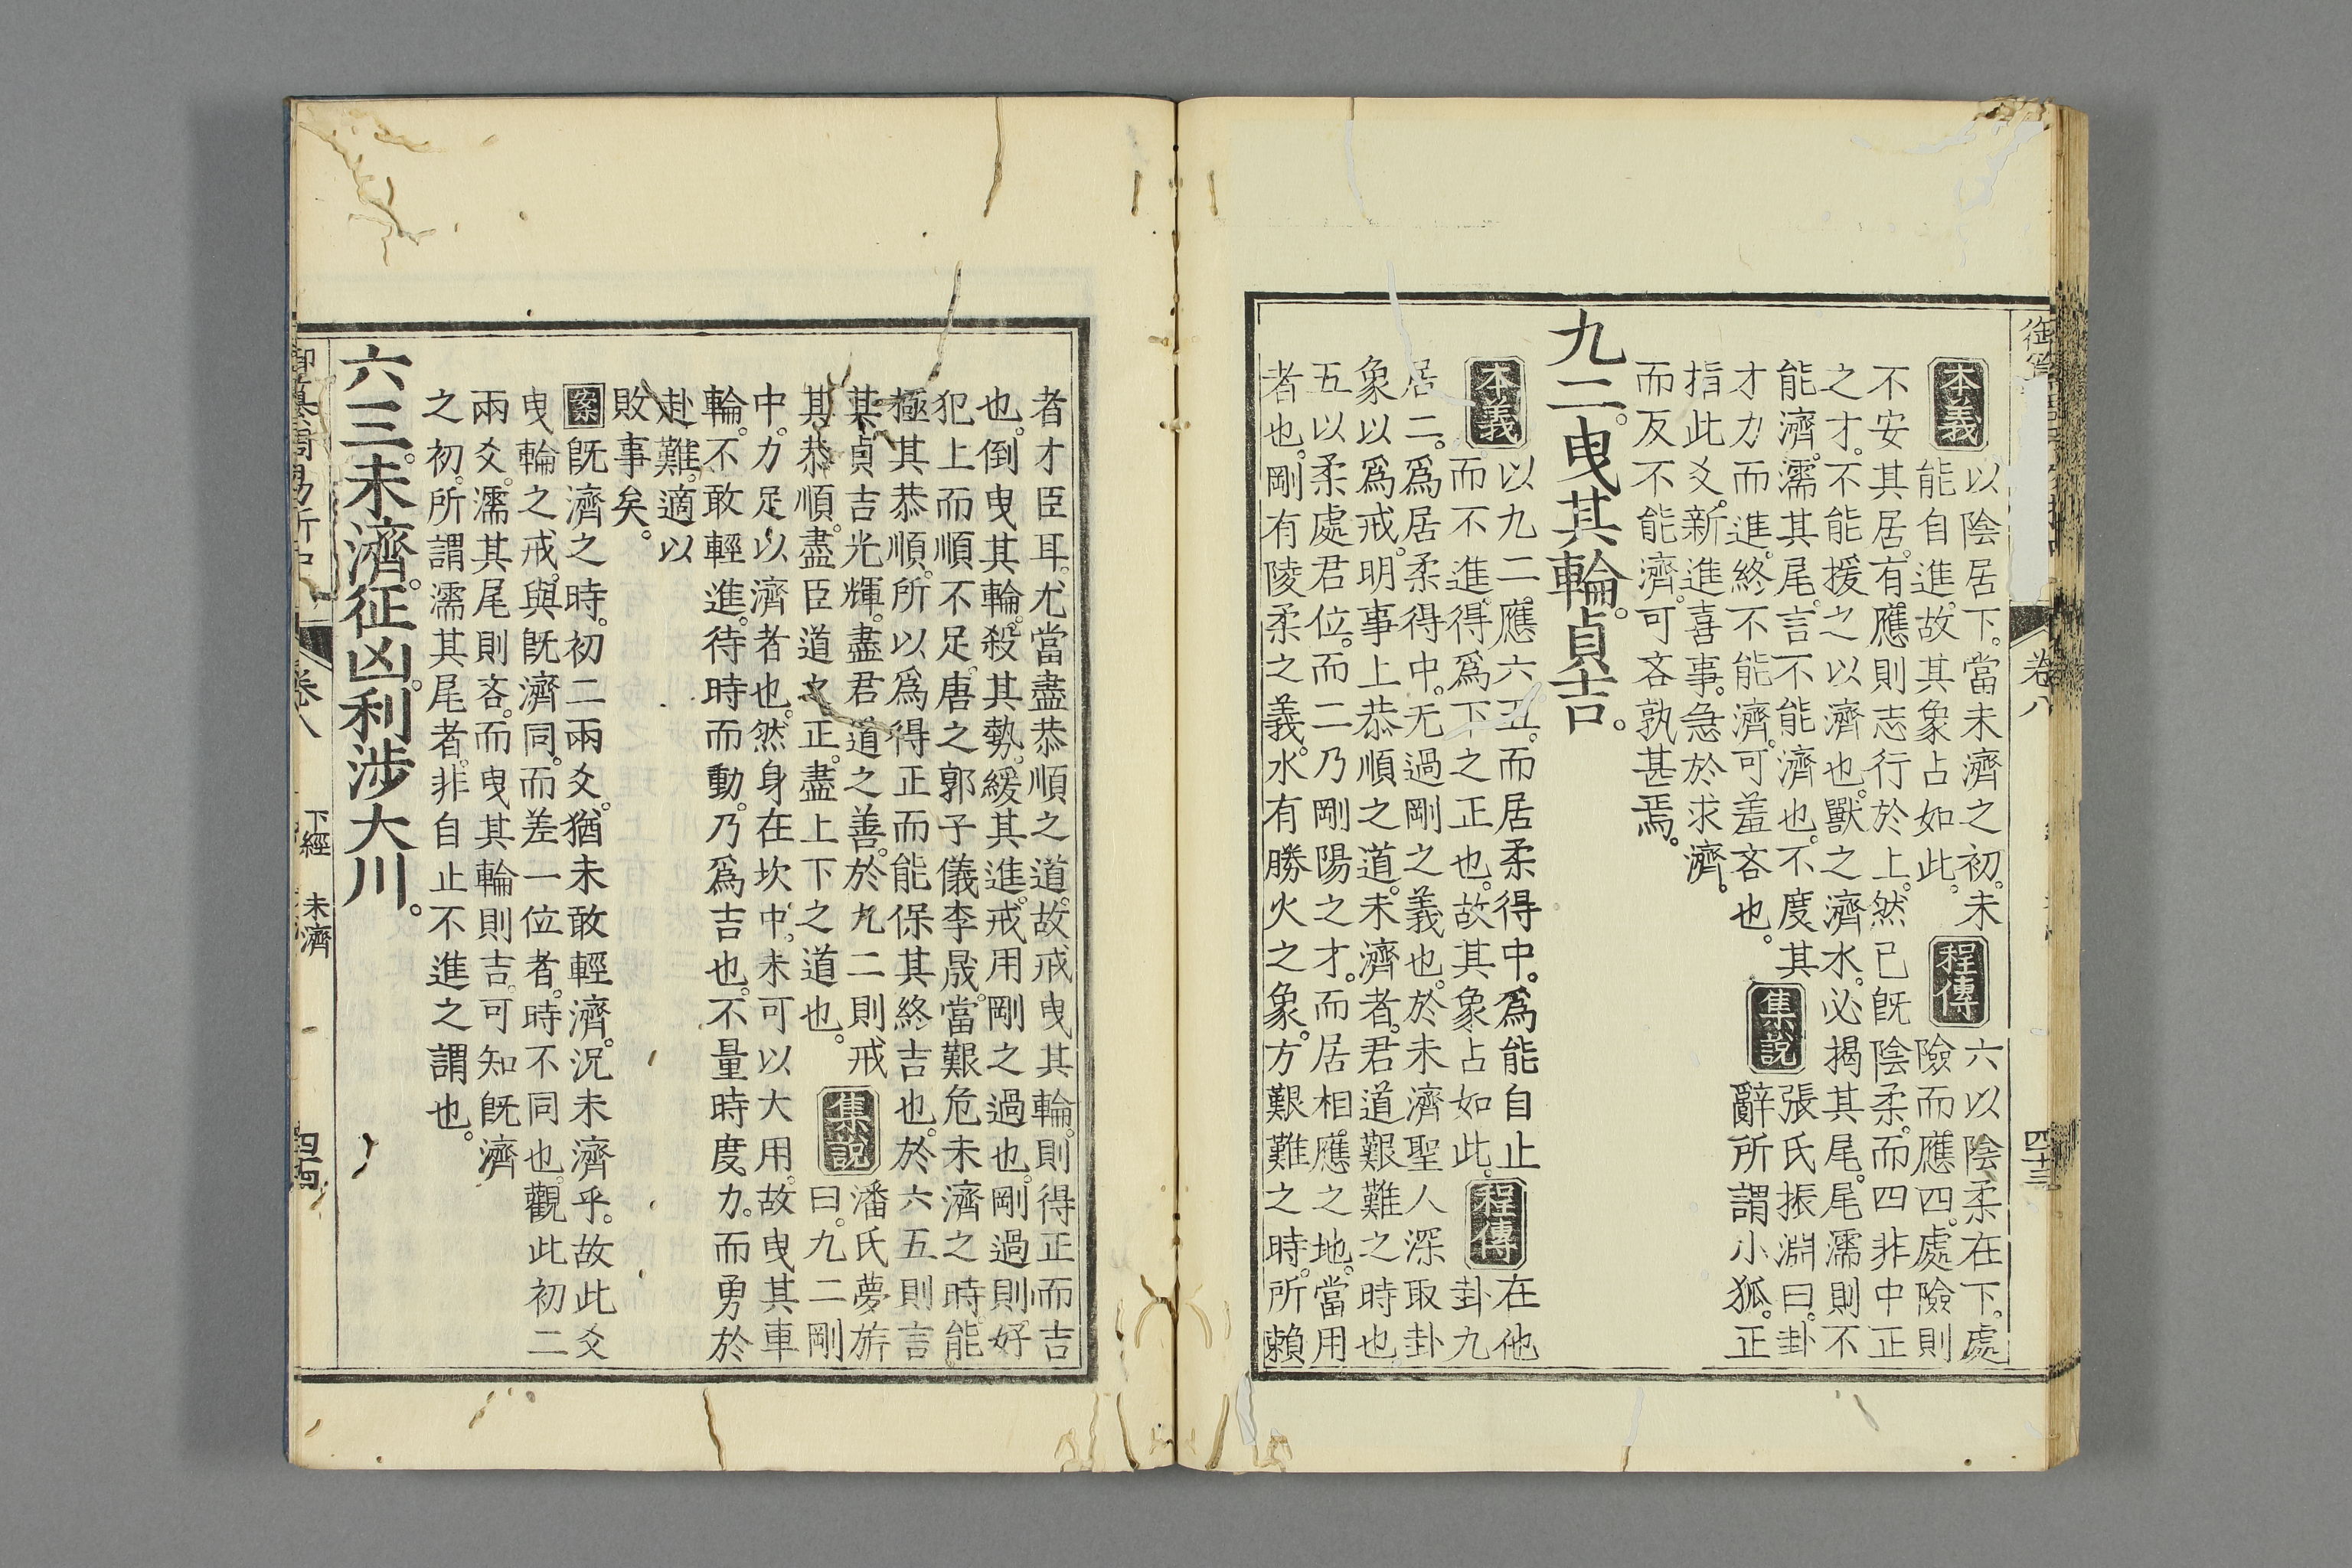 御纂
卷八
四十三
本義
以陰居下。當未濟之初。未
能自進。故其象占如此。
程傳
六以陰柔在下。處
險而應四。處險則
不安其居。有應則志行於上。然已既陰柔。而四非中正
之才。不能援之以濟也。獸之濟水。必揭其尾。尾濡則不
能濟。濡其尾。言不能濟也。不度其
才力而進。終不能濟。可羞吝也。
集說
張氏振淵曰。卦
辭所謂小狐。正
指此爻。新進喜事。急於求濟。
而反不能濟。可吝孰甚焉。
九二。曳其輪。貞吉。
本義
以九二。應六五。而居柔得中。爲能自止
而不進。得爲下之正也。故其象占如此。
程傳
在他
卦九
居二。爲居柔得中。无過剛之義也。於未濟聖人深取卦
象以爲戒。明事上恭順之道。未濟者。君道艱難之時也
五以柔處君位。而二乃剛陽之才。而居相應之地。當用
者也。剛有陵柔之義。水有勝火之象。方艱難之時。所賴
者才臣耳。尤當盡恭順之道。故戒曳其輪。則得正而吉
也。倒曳其輪。殺其勢。緩其進。戒用剛之過也。剛過則好
犯上而順不足。唐之郭子儀李晟。當艱危未濟之時。能
極其恭順。所以爲得正而能保其終吉也。於六五則言
其貞吉光輝。盡君道之善。於九二則戒
其恭順。盡臣道之正。盡上下之道也。
集說
潘氏夢旂
曰。九二剛
中。力足以濟者也。然身在坎中。未可以大用。故曳其車
輪。不敢輕進。待時而動。乃爲吉也。不量時度力。而勇於
赴難。適以
敗事矣。
案
既濟之時。初二兩爻。猶未敢輕濟。況未濟乎。故此爻
曳輪之戒。與既濟同。而差一位者。時不同也。觀此初二
兩爻。濡其尾則吝。而曳其輪則吉。可知既濟
之初。所謂濡其尾者。非自止不進之謂也。
六三。未濟。征凶。利涉大川。
御纂周易折中
卷八
下經 未濟
四十四